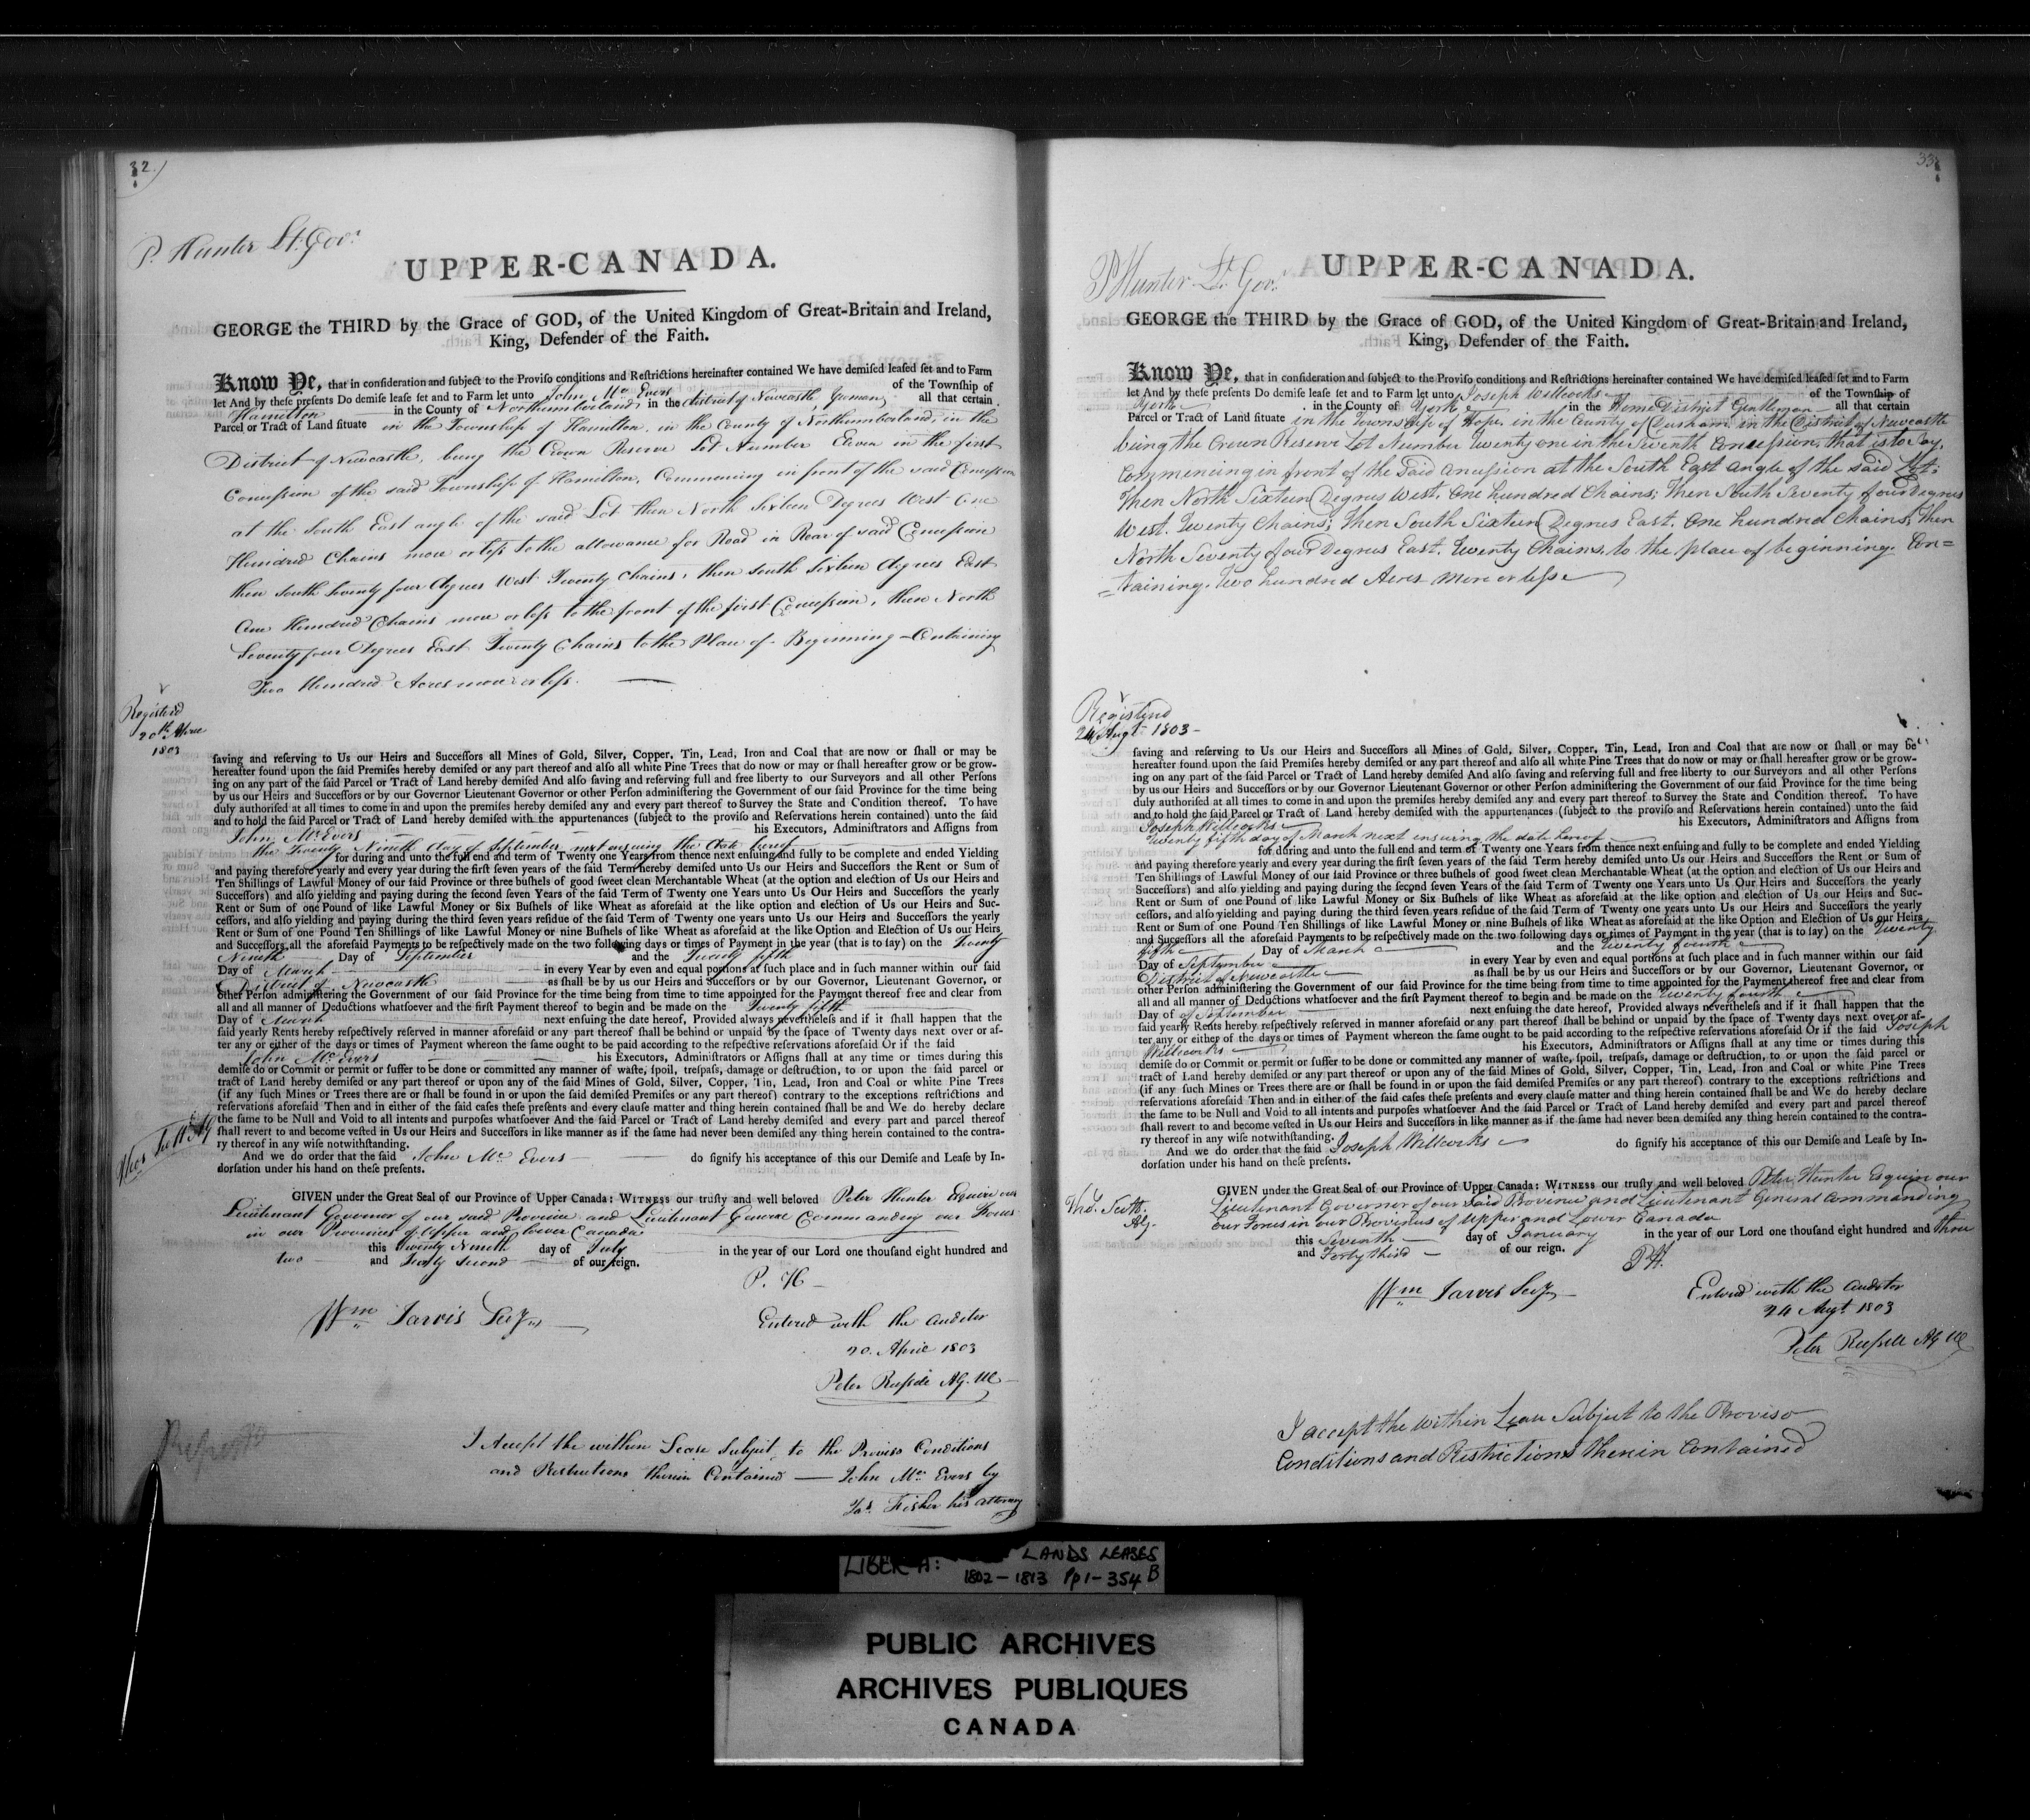 32.)
P. Hunter Lt. Govr.
UPPER-CANADA.
GEORGE the THIRD by the Grace of GOD, of the United Kingdom of Great-Britain and Ireland,
King, Defender of the Faith.
Know Ye, that in conſideration and subject to the Proviſo conditions and Reſtrictions hereinafter contained We have demiſed leaſed ſet and to Farm
let And by theſe preſents Do demiſe leaſe ſet and to Farm let unto John Mc Evers of the Townſhip of
Hamilton in the County of Northumberland, in the district of Newcastle, Yeoman, all that certain
Parcel or Tract of Land ſituate in the Township of Hamilton, in the County of Northumberland, in the
District of Newcastle, being the Crown Reserve Lot Number Eleven in the first
Concession of the said Township of Hamilton, Commencing in front of the said Concession
at the South East angle of the said Lot then North Sixteen Degrees West One
Hundred Chains more or less to the allowance for Road in Rear of said Concession
then South Seventy four degrees West Twenty Chains, then South Sixteen degrees East
One Hundred Chains more or less to the front of the first Concession, then North
Seventy four Degrees East Twenty Chains to the Place of Beginning - Containing
Two Hundred Acres more or less.
Registered
20th April
1803
ſaving and reſerving to Us our Heirs and Succeſſors all Mines of Gold, Silver, Copper, Tin, Lead, Iron and Coal that are now or ſhall or may be
hereafter found upon the ſaid Premiſes hereby demiſed or any part thereof and alſo all white Pine Trees that do now or may or ſhall hereafter grow or be grow-
ing on any part of the ſaid Parcel or Tract of Land hereby demiſed And alſo ſaving and reſerving full and free liberty to our Surveyors and all other Perſons
by us our Heirs and Succeſſors or by our Governor Lieutenant Governor or other Perſon adminiſtering the Government of our ſaid Province for the time being
duly authoriſed at all times to come in and upon the premiſes hereby demiſed any and every part thereof to Survey the State and Condition thereof. To have
and to hold the ſaid Parcel or Tract of Land hereby demiſed with the appurtenances (ſubject to the proviſo and Reſervations herein contained) unto the ſaid
John Mc Evers his Executors, Adminiſtrators and Aſſigns from
the Twenty Nineth day of September next ensuing the date hereof
for during and unto the full end and term of Twenty one Years from thence next enſuing and fully to be complete and ended Yielding
and paying therefore yearly and every year during the firſt ſeven years of the ſaid Term hereby demiſed unto Us our Heirs and Succeſſors the Rent or Sum of
Ten Shillings of Lawful Money of our ſaid Province or three buſhels of good ſweet clean Merchantable Wheat (at the option and election of Us our Heirs and
Succeſſors) and alſo yielding and paying during the ſecond ſeven Years of the ſaid Term of Twenty one Years unto Us Our Heirs and Succeſſors the yearly
Rent or Sum of one Pound of like Lawful Money or Six Buſhels of like Wheat as aforeſaid at the like option and election of Us our Heirs and Suc-
ceſſors, and alſo yielding and paying during the third ſeven years reſidue of the ſaid Term of Twenty one years unto Us our Heirs and Succeſſors the yearly
Rent or Sum of one Pound Ten Shillings of like Lawful Money or nine Buſhels of like Wheat as aforeſaid at the like Option and Election of Us our Heirs
and Succeſſors all the aforeſaid Payments to be reſpectively made on the two following days or times of Payment in the year (that is to ſay) on the Twenty
Nineth Day of September and the Twenty fifth
Day of March in every Year by even and equal portions at ſuch place and in ſuch manner within our ſaid
District of Newcastle as ſhall be by us our Heirs and Succeſſors or by our Governor, Lieutenant Governor, or
other Perſon adminiſtering the Government of our ſaid Province for the time being from time to time appointed for the Payment thereof free and clear from
all and all manner of Deductions whatſoever and the firſt Payment thereof to begin and be made on the Twenty fifth
Day of March next enſuing the date hereof, Provided always nevertheleſs and if it ſhall happen that the
ſaid yearly Rents hereby reſpectively reſerved in manner aforeſaid or any part thereof ſhall be behind or unpaid by the ſpace of Twenty days next over or af-
ter any or either of the days or times of Payment whereon the ſame ought to be paid according to the reſpective reſervations aforeſaid Or if the ſaid
John Mc Evers his Executors, Adminiſtrators or Aſſigns ſhall at any time or times during this
demiſe do or Commit or permit or ſuffer to be done or committed any manner of waſte, ſpoil, treſpaſs, damage or deſtruction, to or upon the ſaid parcel or
tract of Land hereby demiſed or any part thereof or upon any of the ſaid Mines of Gold, Silver, Copper, Tin, Lead, Iron and Coal or white Pine Trees
(if any ſuch Mines or Trees there are or ſhall be found in or upon the ſaid demiſed Premiſes or any part thereof) contrary to the exceptions reſtrictions and
reſervations aforeſaid Then and in either of the ſaid caſes theſe preſents and every clauſe matter and thing herein contained ſhall be and We do hereby declare
the ſame to be Null and Void to all intents and purpoſes whatſoever And the ſaid Parcel or Tract of Land hereby demiſed and every part and parcel thereof
ſhall revert to and become veſted in Us our Heirs and Succeſſors in like manner as if the ſame had never been demiſed any thing herein contained to the contra-
ry thereof in any wiſe notwithſtanding.
And we do order that the ſaid John Mc Evers do ſignify his acceptance of this our Demiſe and Leaſe by In-
dorſation under his hand on theſe preſents.
GIVEN under the Great Seal of our Province of Upper Canada: WITNESS our truſty and well beloved Peter Hunter Esquire our
Lieutenant Governor of our said Province and Lieutenant General Commanding our Forces
in our Provinces of Upper and Lower Canada
this Twenty Nineth day of July in the year of our Lord one thouſand eight hundred and
two and Forty Second of our reign.
P. H
Wm Jarvis Secy.
Entered with the Auditor
20. April 1803
Peter Russell
I Accept the within Lease Subject to the Proviso Conditions
and Restrictions therein Contained — John Mc Evers by
Jas. Fisher his attorney
33
P Hunter Lt. Govr.
UPPER-CANADA.
GEORGE the THIRD by the Grace of GOD, of the United Kingdom of Great-Britain and Ireland,
King, Defender of the Faith.
Know Ye, that in conſideration and ſubject to the Proviſo conditions and Reſtrictions hereinafter contained We have demiſed leaſed ſet and to Farm
let And by theſe preſents Do demiſe leaſe ſet and to Farm let unto Joseph Willcocks of the Townſhip of
York in the County of York in the Home District Gentleman all that certain
Parcel or Tract of Land ſituate in the Township of Hope, in the County of Durham in the District of Newcastle
being the Crown Reserve Lot Number Twenty one in the Seventh Concession, that is to Say,
Commencing in front of the Said Concession at the South East angle of the Said Lot;
Then North Sixteen Degrees West. One hundred Chains; Then South Seventy four Degrees
West. Twenty Chains; Then South Sixteen Degrees East. One hundred Chains, Then
North Seventy four Degrees East. Twenty Chains, to the place of beginning. Con=
=taining, Two hundred Acres more or less
Registered
24 Augt. 1803 -
ſaving and reſerving to Us our Heirs and Succeſſors all Mines of Gold, Silver, Copper, Tin, Lead, Iron and Coal that are now or ſhall or may be
hereafter found upon the ſaid Premiſes hereby demiſed or any part thereof and alſo all white Pine Trees that do now or may or ſhall hereafter grow or be grow-
ing on any part of the ſaid Parcel or Tract of Land hereby demiſed And alſo ſaving and reſerving full and free liberty to our Surveyors and all other Perſons
by us our Heirs and Succeſſors or by our Governor Lieutenant Governor or other Perſon adminiſtering the Government of our ſaid Province for the time being
duly authoriſed at all times to come in and upon the premiſes hereby demiſed any and every part thereof to Survey the State and Condition thereof. To have
and to hold the ſaid Parcel or Tract of Land hereby demiſed with the appurtenances (ſubject to the proviſo and Reſervations herein contained) unto the ſaid
Joseph Willcocks his Executors, Adminiſtrators and Aſſigns from
Twenty fifth day of March next ensuing the date hereof
for during and unto the full end and term of Twenty one Years from thence next enſuing and fully to be complete and ended Yielding
and paying therefore yearly and every year during the firſt ſeven years of the ſaid Term hereby demiſed unto Us our Heirs and Succeſſors the Rent or Sum of
Ten Shillings of Lawful Money of our ſaid Province or three buſhels of good ſweet clean Merchantable Wheat (at the option and election of Us our Heirs and
Succeſſors) and alſo yielding and paying during the ſecond ſeven Years of the ſaid Term of Twenty one Years unto Us Our Heirs and Succeſſors the yearly
Rent or Sum of one Pound of like Lawful Money or Six Buſhels of like Wheat as aforeſaid at the like option and election of Us our Heirs and Suc-
ceſſors, and alſo yielding and paying during the third ſeven years reſidue of the ſaid Term of Twenty one years unto Us our Heirs and Succeſſors the yearly
Rent or Sum of one Pound Ten Shillings of like Lawful Money or nine Buſhels of like Wheat as aforeſaid at the like Option and Election of Us our Heirs
and Succeſſors all the aforeſaid Payments to be reſpectively made on the two following days or times of Payment in the year (that is to ſay) on the Twenty
fifth Day of March and the Twenty fourth
Day of September in every Year by even and equal portions at ſuch place and in ſuch manner within our ſaid
District of Newcastle as ſhall be by us our Heirs and Succeſſors or by our Governor, Lieutenant Governor, or
other Perſon adminiſtering the Government of our ſaid Province for the time being from time to time appointed for the Payment thereof free and clear from
all and all manner of Deductions whatſoever and the firſt Payment thereof to begin and be made on the Twenty fourth
Day of of September next enſuing the date hereof, Provided always nevertheleſs and if it ſhall happen that the
ſaid yearly Rents hereby reſpectively reſerved in manner aforeſaid or any part thereof ſhall be behind or unpaid by the ſpace of Twenty days next over or af-
ter any or either of the days or times of Payment whereon the ſame ought to be paid according to the reſpective reſervations aforeſaid Or if the ſaid Joseph
Willcocks his Executors, Adminiſtrators or Aſſigns ſhall at any time or times during this
demiſe do or Commit or permit or ſuffer to be done or committed any manner of waſte, ſpoil, treſpaſs, damage or deſtruction, to or upon the ſaid parcel or
tract of Land hereby demiſed or any part thereof or upon any of the ſaid Mines of Gold, Silver, Copper, Tin, Lead, Iron and Coal or white Pine Trees
(if any ſuch Mines or Trees there are or ſhall be found in or upon the ſaid demiſed Premiſes or any part thereof) contrary to the exceptions reſtrictions and
reſervations aforeſaid Then and in either of the ſaid caſes theſe preſents and every clauſe matter and thing herein contained ſhall be and We do hereby declare
the ſame to be Null and Void to all intents and purpoſes whatſoever And the ſaid Parcel or Tract of Land hereby demiſed and every part and parcel thereof
ſhall revert to and become veſted in Us our Heirs and Succeſſors in like manner as if the ſame had never been demiſed any thing herein contained to the contra-
ry thereof in any wiſe notwithſtanding.
And we do order that the ſaid Joseph Willcocks do ſignify his acceptance of this our Demiſe and Leaſe by In-
dorſation under his hand on theſe preſents.
Thos. Scott.
Ag.
GIVEN under the Great Seal of our Province of Upper Canada: WITNESS our truſty and well beloved Peter Hunter Esquire our
Lieutenant Governor of our Said Province and Lieutenant General Commanding
our Forces in our Provinces of Upper and Lower Canada
this Seventh day of January in the year of our Lord one thouſand eight hundred and three
and Forty third of our reign.
P.H.
Wm Jarvis Secy
Entered with the Auditor
24 Augt. 1803
Peter Russell
I accept the Within Lease Subject to the Proviso
Conditions and Restrictions therein Contained
LIBER A: LANDS LEASES
1802-1813 Pp 1-354 B
PUBLIC ARCHIVES
ARCHIVES PUBLIQUES
CANADA